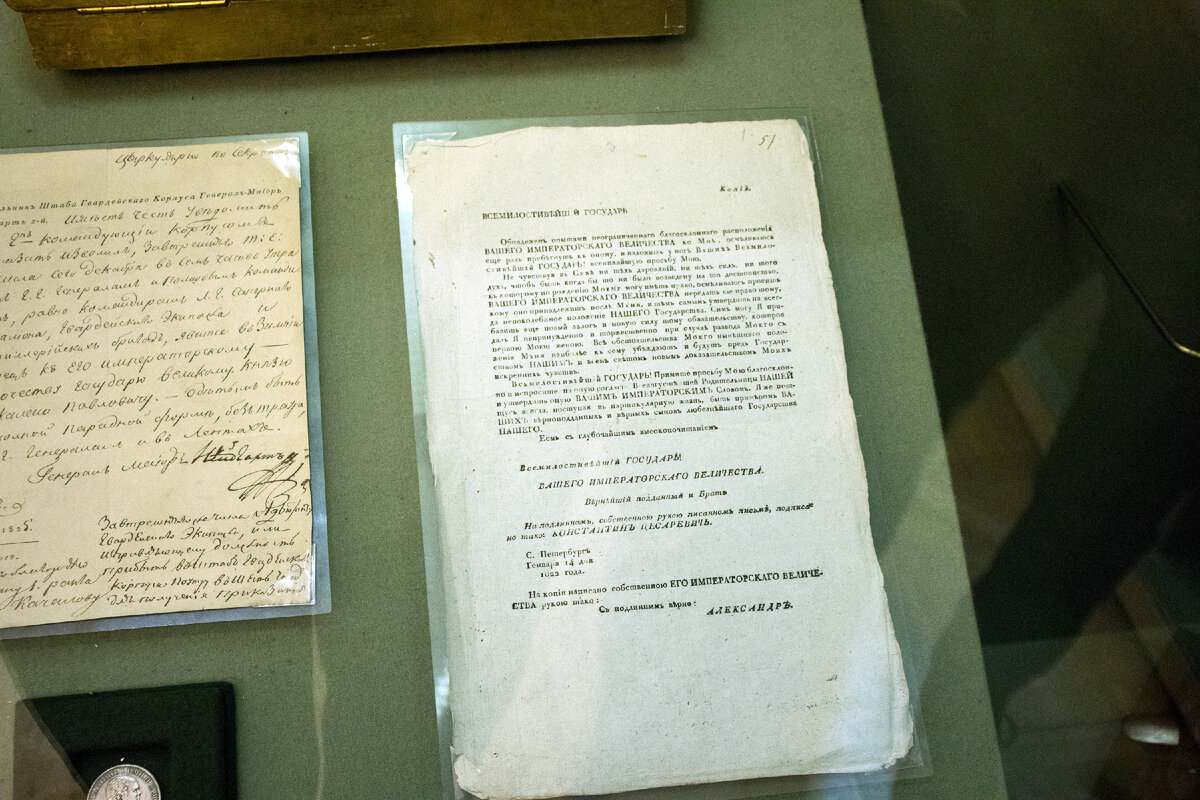 Циркулярно по секрету
Штаба Гвардейского Корпуса Генерал-Маіоръ
Имѣетъ честь увѣдомить
командующій Корпусомъ
изволилъ, Завтрешняго т: е:
числа сего декабря въ семь часовъ утра
Г. Г. Генераламъ и Полковымъ команди
равно командирамъ Л. Г. Сапернаго
Гвардейского Экипажа и
бригадъ, явитца въ Зимній
къ ЕГО императорскому
Государю великому Князю
Павловичу. — одѣтымъ быть
Парадной формѣ, безъ траура,
Г. Генераламъ и въ Лентахъ.
Генералъ маіоръ
1825:
Завтрешняго же числа
Гвардейскій Экипажъ, или
должность
прибыть въ штабъ Гвардейскаго
Корпуса по
Качалову для полученія Приказанія
51
Копія.
ВСЕМИЛОСТИВѢЙШІЙ ГОСУДАРЬ
Обнадеженъ опытами неограниченнаго благосклоннаго расположенія
ВАШЕГО ИМПЕРАТОРСКАГО ВЕЛИЧЕСТВА ко Мнѣ, осмѣливаюся
еще разъ прибѣгнуть къ оному, и изложить у ногъ Вашихъ Всемило-
стивѣйшій ГОСУДАРЬ! всенижайшую просьбу Мою.
Не чувствуя въ Себѣ ни тѣхъ дарованій, ни тѣхъ силъ, ни того
духа, чтобъ быть когда бы то ни было возведену на то достоинство,
къ которому по рожденію Моему могу имѣть право, осмѣливаюсь просить
ВАШЕГО ИМПЕРАТОРСКАГО ВЕЛИЧЕСТВА передать сіе право оному,
кому оно принадлежитъ послѣ Меня, и тѣмъ самымъ утвердить на всег-
да непоколебимое положеніе НАШЕГО Государства. Симъ могу Я при-
бавить еще новый залогъ и новую силу тому обязательству, которое
далъ Я непринужденно и торжественно при случаѣ развода Моего съ
первою Моею женою. Всѣ обстоятельства Моего нынѣшняго поло-
женія Меня наиболѣе къ сему убѣждаютъ и будутъ предъ Государ-
ствомъ НАШИМЪ и всемъ свѣтомъ новымъ доказательствомъ Моихъ
искреннихъ чувствъ.
Всемилостивѣйшій ГОСУДАРЬ! Примите просьбу Мою благосклон-
но и испросите на оную согласіе Всеавгустѣйшей Родительницы НАШЕЙ
и утвердите оную ВАШИМЪ ИМПЕРАТОРСКИМЪ Словомъ. Я же пот-
щусь всегда, поступая въ партикулярную жизнь, быть примѣромъ ВА-
ШИХЪ вѣрноподданныхъ и вѣрныхъ сыновъ любезнѣйшаго Государства
НАШЕГО.
Есмь съ глубочайшимъ высокопочитаніемъ
Всемилостивѣйшій ГОСУДАРЬ!
ВАШЕГО ИМПЕРАТОРСКАГО ВЕЛИЧЕСТВА.
Вѣрнѣйшій подданный и Братъ
На подлинномъ, собственною рукою писанномъ письмѣ, подписа-
но тако: КОНСТАНТИНЪ ЦЕСАРЕВИЧЬ.
С. Петербургъ
Генваря 14 дня
1822 года.
На копіи написано собственною ЕГО ИМПЕРАТОРСКАГО ВЕЛИЧЕ-
СТВА рукою тако:
Съ подлиннымъ вѣрно: АЛЕКСАНДРЪ.